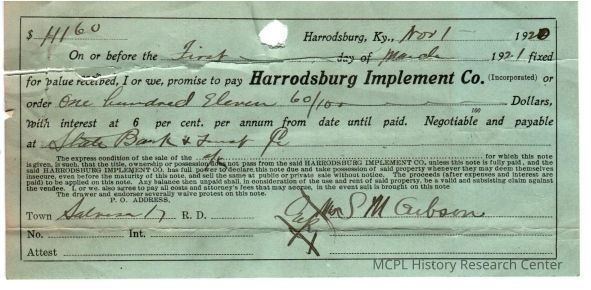 $ 111 60 Harrodsburg, Ky., Nov 1 1920
On or before the First day of March 1921 fixed
for value received, I or we, promise to pay Harrodsburg Implement Co. (Incorporated) or
order One hundred Eleven 60/100 Dollars,
100
with interest at 6 per cent. per annum from date until paid. Negotiable and payable
at State Bank & Trust Co
The express condition of the sale of the a/c for which this note
is given, is such, that the title, ownership or possession does not pass from the said HARRODSBURG IMPLEMENT CO. unless this note is fully paid, and the
said HARRODSBURG IMPLEMENT CO. has full power to declare this note due and take possession of said property whenever they may deem themselves
insecure, even before the maturity of this note, and sell the same at public or private sale without notice. The proceeds (after expenses and interest are
paid) to be applied on this note. Any balance then unpaid shall, in consideration of the use and rent of said property, be a valid and subsisting claim against
the vendee. I, or we also agree to pay all costs and attorney's fees that may accrue, in the event suit is brought on this note
The drawer and endorser severally waive protest on this note.
P. O. ADDRESS,
Town Salvisa Ky R. D. S M Gibson
No. Int.
Attest
MCPL History Research Center